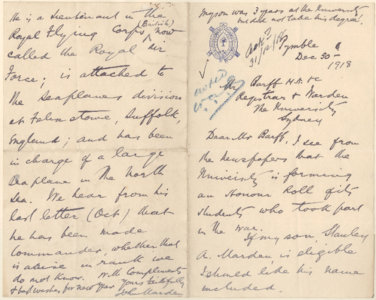 my son was 3 years at the University
he did not take his degree.
Pymble
Dec 30th
1918
Barff M.A. etc
Registrar & Warden
The University
Sydney
Dear Mr Barff, I see from
the newspapers that the
University is forming
an Honour Roll of its
students who took part
in the War.
If my son Stanley
A. Marden, is eligible
I should like his name
included.
He is a Lieutenant in the
Royal Flying Corps (British) now
called the Royal Air
Force; is attached to
the Seaplanes division
at Felixstowe, Suffolk,
England; and has been
in charge of a large
Seaplane in the North
Sea. We hear from his
last letter (Oct) that
he has been made
Commander, whether that
is a rise in rank we
do not know. With Compliments
& best wishes for new year Yours faithfully
John Marden